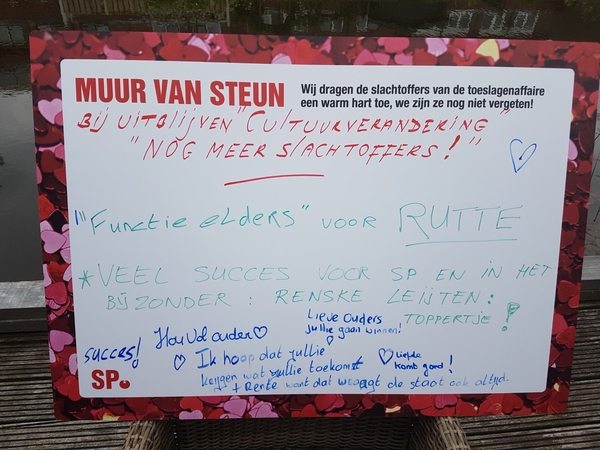 MUUR VAN STEUN
Wij dragen de slachtoffers van de toeslagenaffaire
een warm hart toe, we zijn ze nog niet vergeten!
Bij uitblijven "CULTUURVERANDERING"
"NOG MEER SLACHTOFFERS!"
"Functie elders" voor RUTTE
*VEEL SUCCES VOOR SP EN IN HET
BIJZONDER: RENSKE LEIJTEN:
TOPPERTJE!
Lieve Ouders
jullie gaan winnen!
Hou Vol ouder
succes!
Ik hoop dat jullie
krijgen wat jullie toekomst
+ Rente want dat vraagt de staat ook altijd.
Liefde
komt goed!
SP.